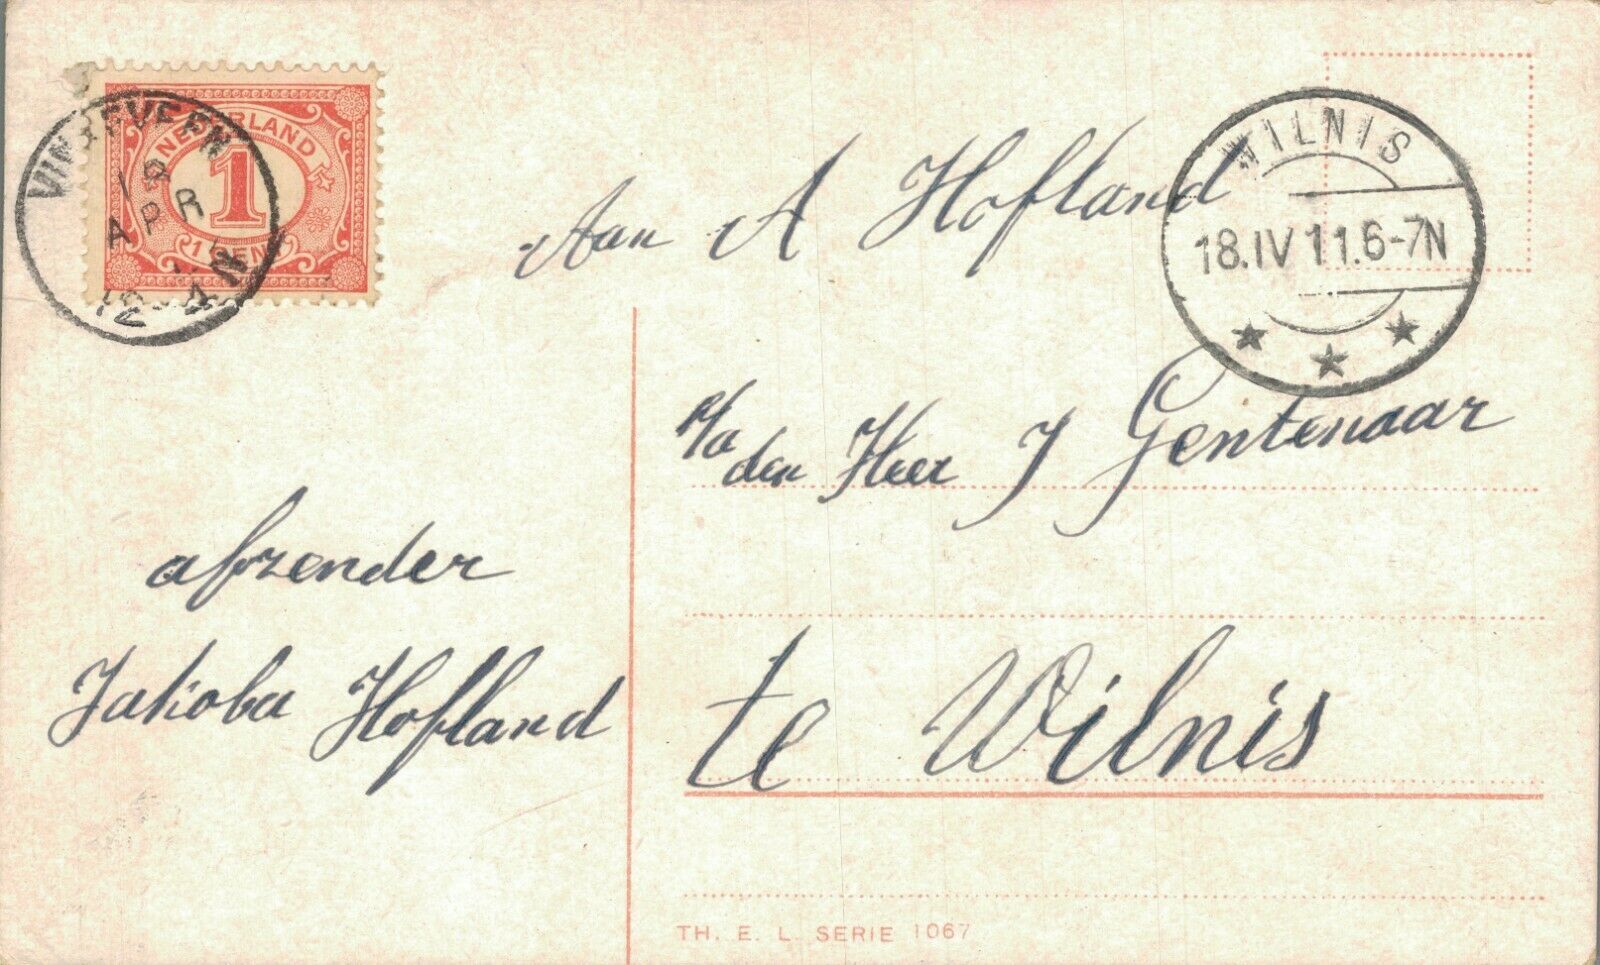 NEDERLAND
1
1 CENT
VINKEVEEN
18
APR
WILNIS
18.IV 11.6-7N
Aan A Hofland
p/a
den Heer J Gentenaar
te Wilnis
afzender
Jakoba Hofland
TH. E. L. SERIE 1067